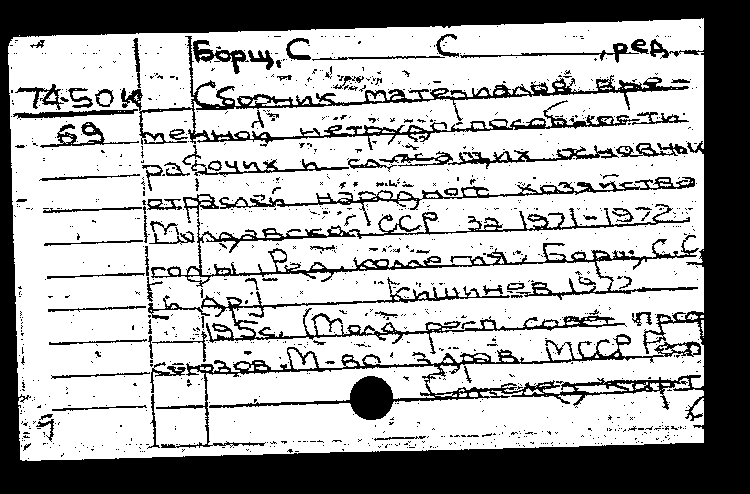 Борщ, С С , ред.
74-50к Сборник материалов вре-
69 менной нетрудоспособности
рабочих и служащих основных
отраслей народного хозяйства
Молдавской ССР за 1971-1972
годы. [Ред. коллегия: Борщ, С.С.
[и др.] Кишинев, 1972.
195с. (Молд. респ. совет проф
союзов. М-во здрав. МССР. Респ